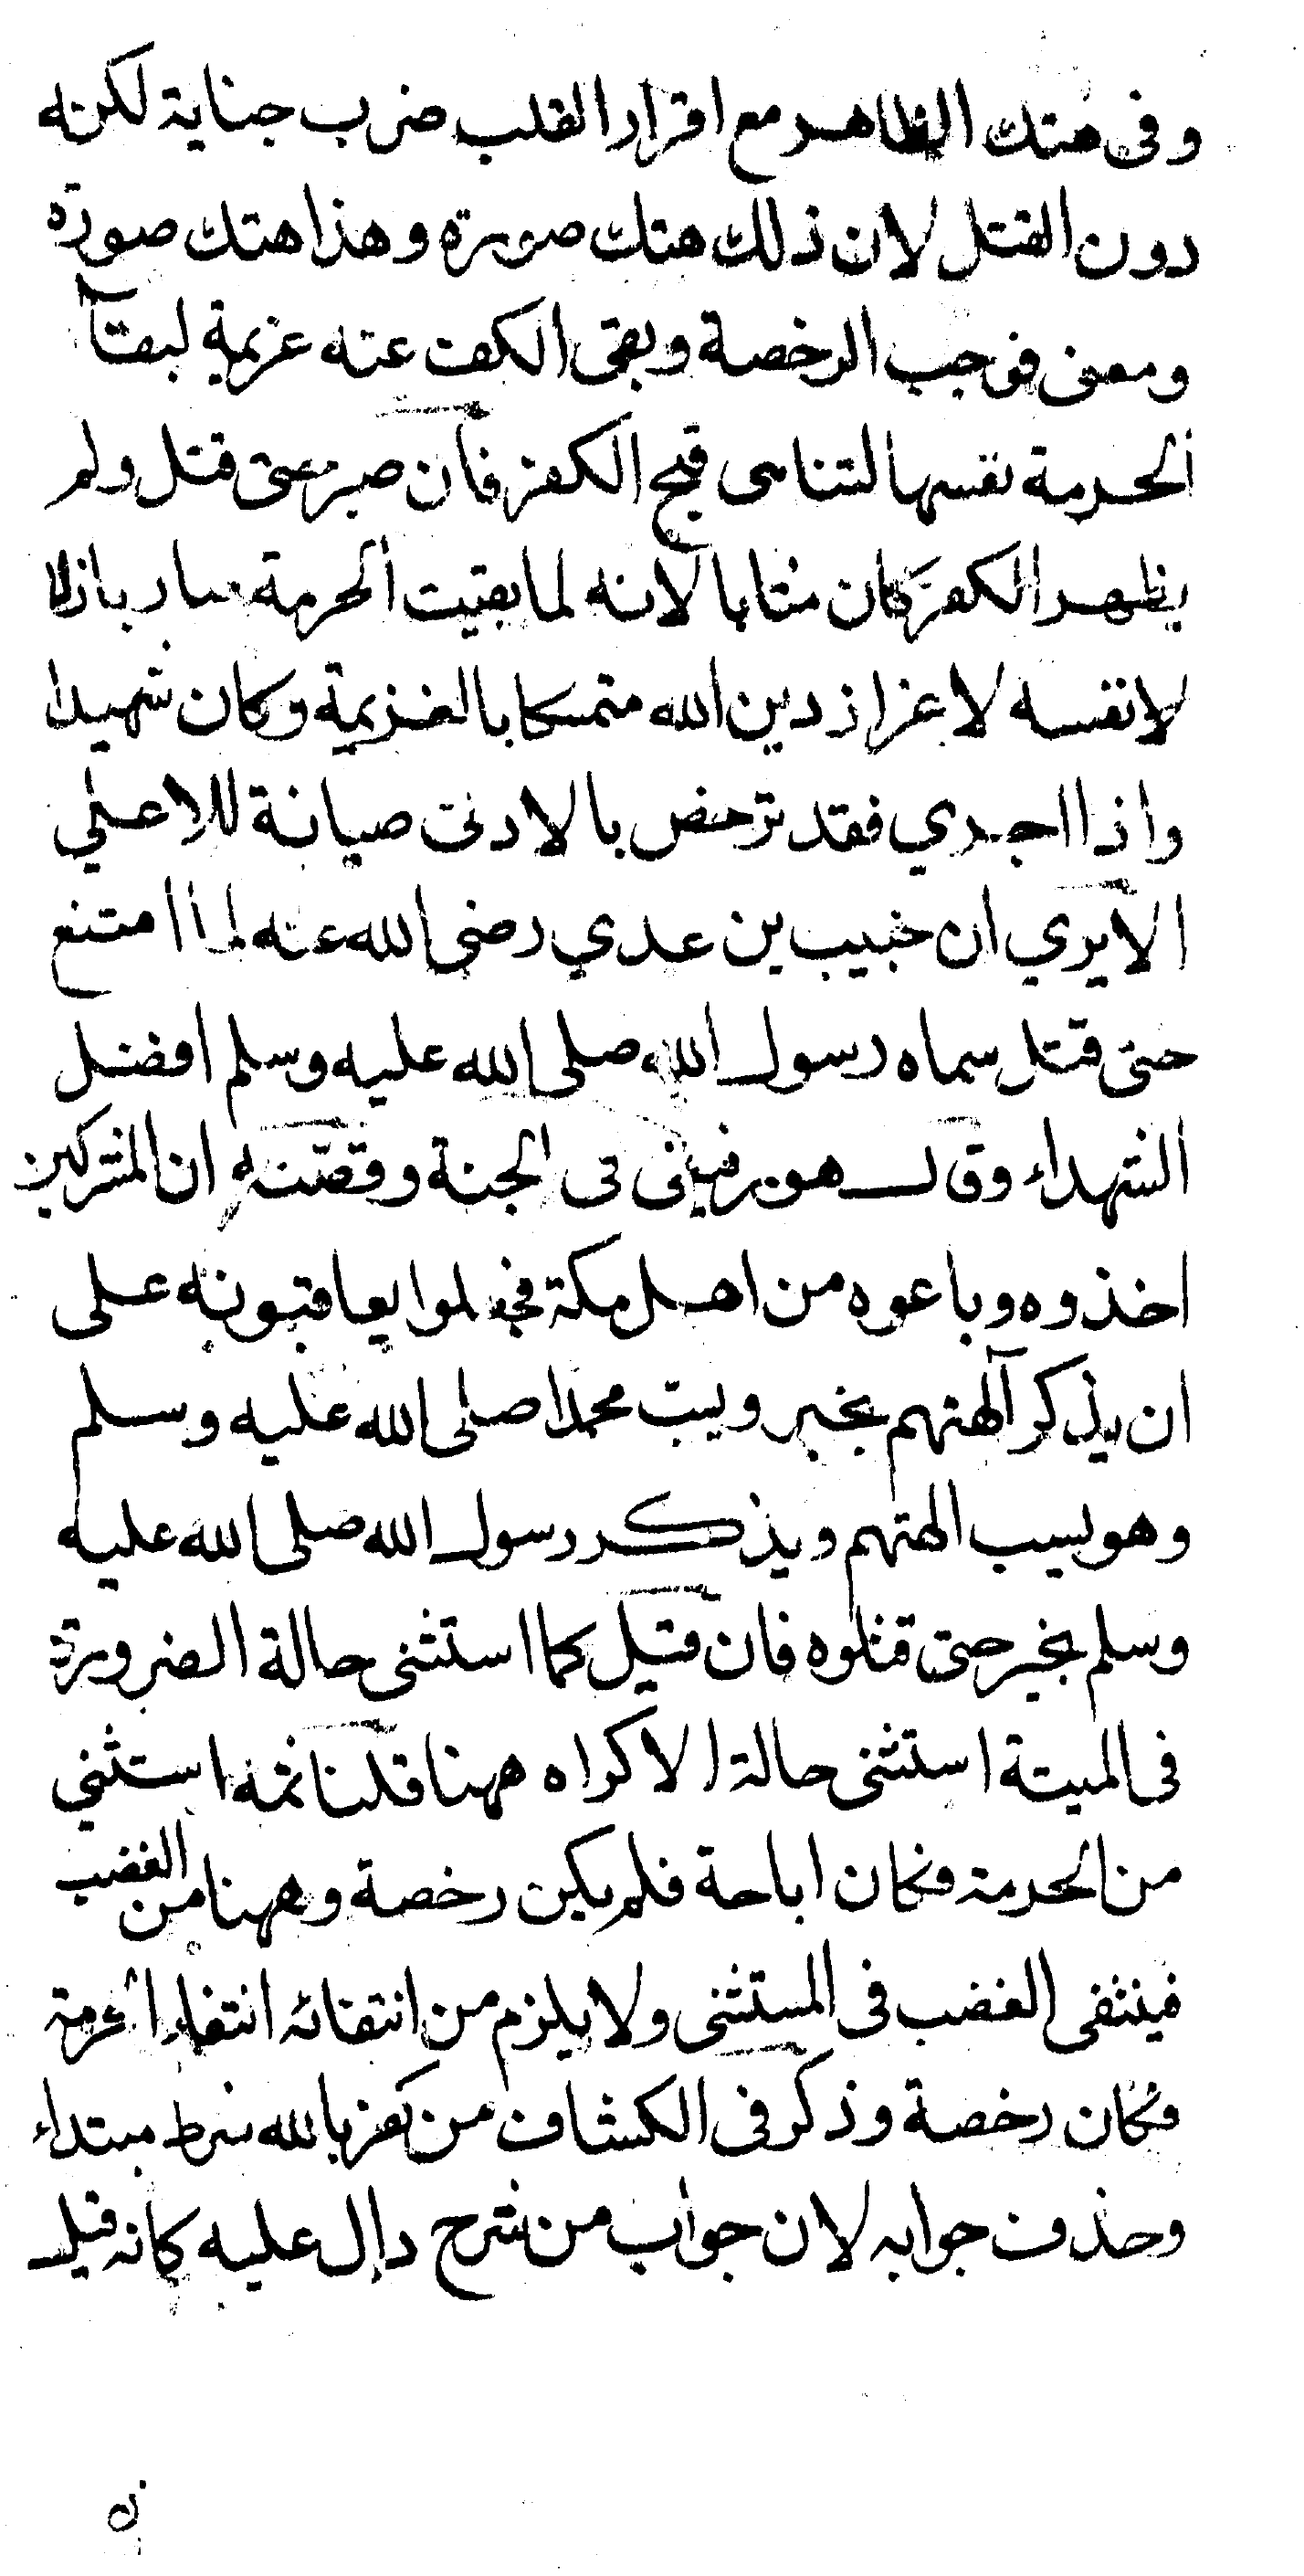 وفى هتك الظاهر مع اقرار القلب ضرب جناية لكنه
دون القتل لان ذلك هتك صورة وهذا هتك صورة
ومعنى فوجب الرخصة وبقى الكف عنه عزيمة لبقآ
الحرمة نفسها لتناهى قبح الكفر فان صبر حتى قتل ولم
يظهر الكفر كان مثابا لانه لما بقيت الحرمة صار باذلا
لانفسه لاعزاز دين الله متمسكا بالعزيمة وكان شهيدا
واذا اجري فقد ترخص بالادنى صيانة للاعلي
الا يري ان خبيب بن عدي رضى الله عنه لما امتنع
حتى قتل سماه رسول الله صلى الله عليه وسلم افضل
الشهداء وقال هو رفيقى فى الجنة وقصته ان المشركين
اخذوه وباعوه من اهل مكة فجعلوا يعاقبونه على
ان يذكر آلهتهم بخير ويسب محمدا صلى الله عليه وسلم
وهو يسب الهتهم ويذكر رسول الله صلى الله عليه
وسلم بخير حتى قتلوه فان قيل كما استثنى حالة الضرورة
فى الميتة استثنى حالة الاكراه ههنا قلنا ثمه استثني
من الحرمة فكان اباحة فلم يكن رخصة وههنا من الغضب
فينتفى الغضب فى المستثنى ولا يلزم من انتفائه انتفاء الحرمة
فكان رخصة وذكر فى الكشاف من كفر بالله شرط مبتداء
وحذف جوابه لان جواب من شرح دال عليه كانه قيل